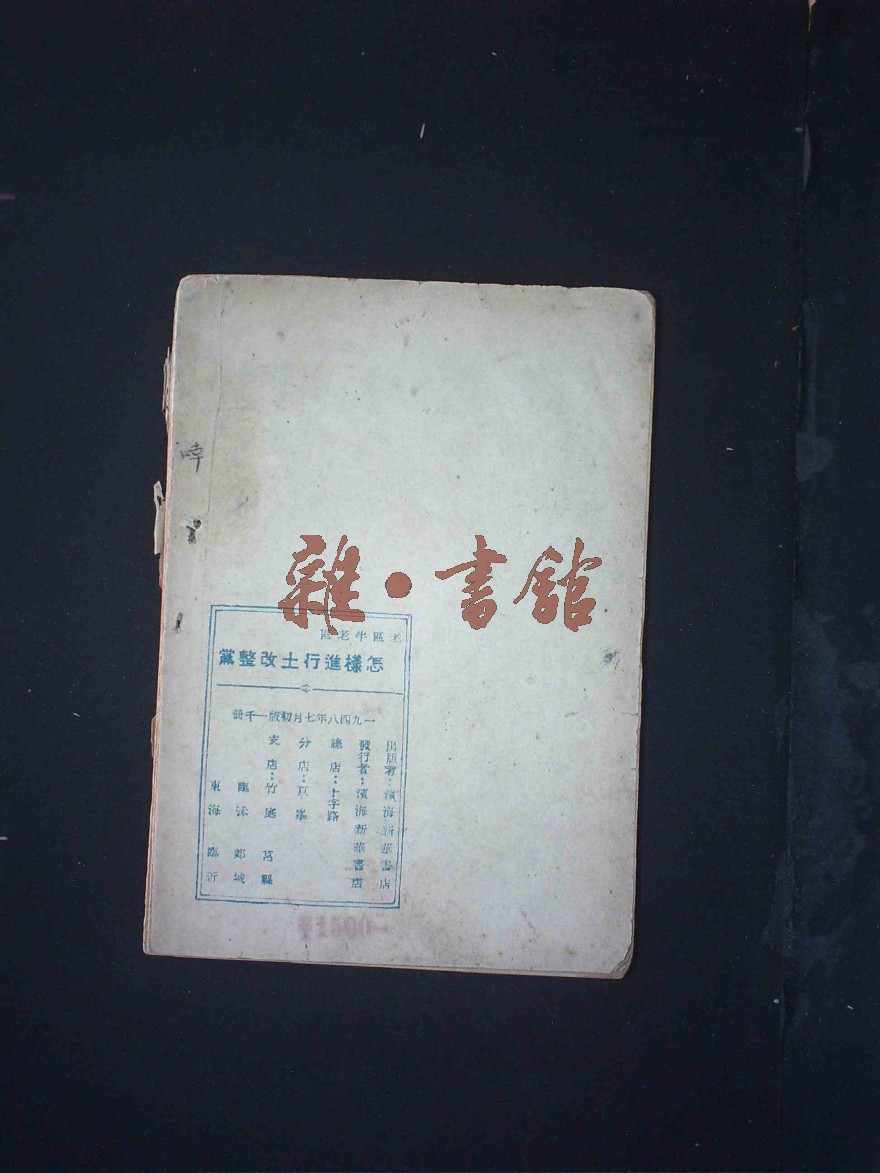 雜·書館
老區半老區
怎樣進行土改整黨
一九四八年七月初版一千冊
出版者:濱海新華書店
發行者:濱海新華書店
總店:十字路
分店:
支店:竹庭 莒縣
臨沭 郯城
東海 臨沂
1500